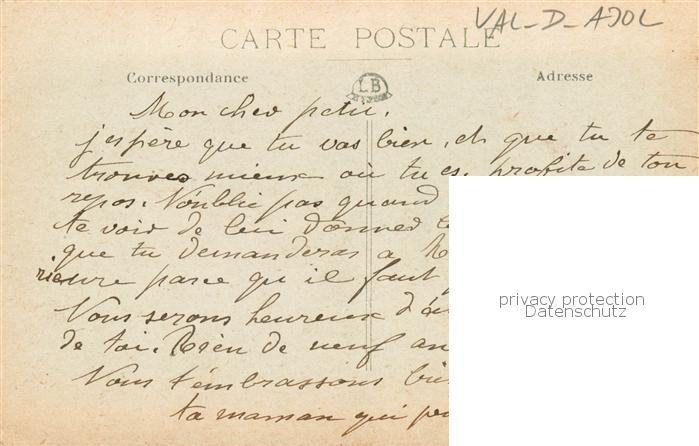 VAL-D-AJOL
CARTE POSTALE
Correspondance
LB
Adresse
Mon cher petit.
j'espère que tu vas bien, et que tu te
trouves mieux où tu es. profite de ton
repos. N'oublie pas quand
te voir de lui donner
que tu demanderas a
rieure parce qu il faut
Nous serons heureux
de toi. Rien de neuf
Nous t'embrassons
ta maman qui
privacy protection
Datenschutz